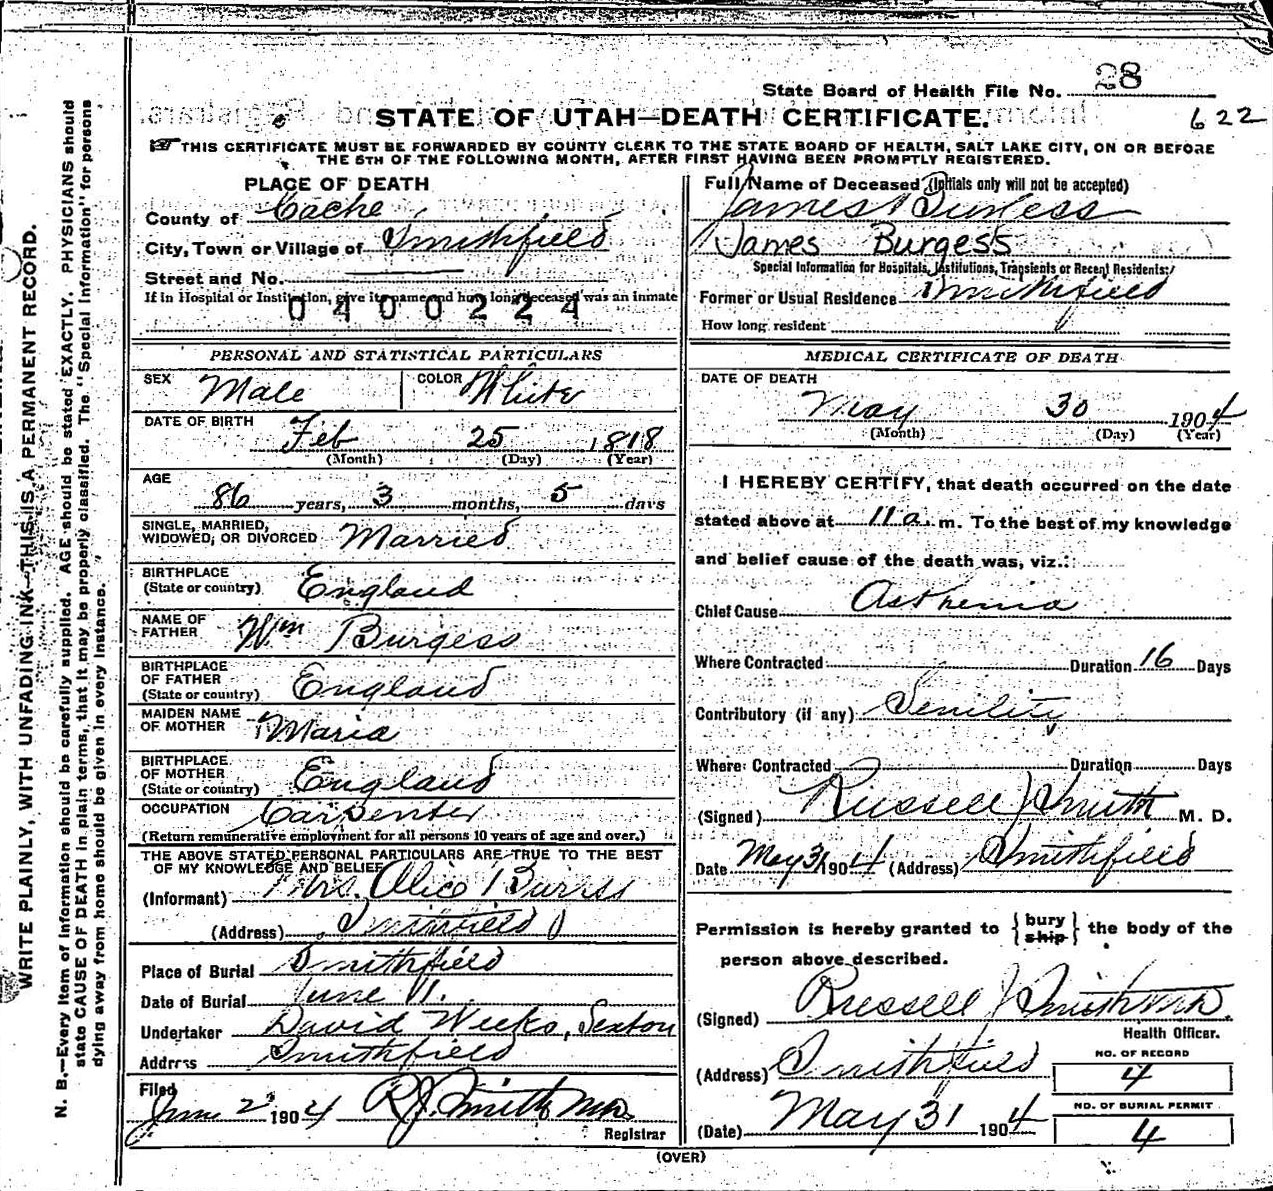 State Board of Health File No. 28
STATE OF UTAH—DEATH CERTIFICATE.
622
THIS CERTIFICATE MUST BE FORWARDED BY COUNTY CLERK TO THE STATE BOARD OF HEALTH, SALT LAKE CITY, ON OR BEFORE
THE 5TH OF THE FOLLOWING MONTH, AFTER FIRST HAVING BEEN PROMPTLY REGISTERED.
PLACE OF DEATH
County of Cache
City, Town or Village of Smithfield
Street and No.
If in Hospital or Institution, give its name and how long deceased was an inmate
0400224
PERSONAL AND STATISTICAL PARTICULARS
SEX Male COLOR White
DATE OF BIRTH Feb 25 1818
(Month) (Day) (Year)
AGE
86 years, 3 months, 5 days
SINGLE, MARRIED,
WIDOWED, OR DIVORCED Married
BIRTHPLACE
(State or country) England
NAME OF
FATHER Wm Burgess
BIRTHPLACE
OF FATHER
(State or country) England
MAIDEN NAME
OF MOTHER Maria
BIRTHPLACE
OF MOTHER
(State or country) England
OCCUPATION Carpenter
(Return remunerative employment for all persons 10 years of age and over.)
THE ABOVE STATED PERSONAL PARTICULARS ARE TRUE TO THE BEST
OF MY KNOWLEDGE AND BELIEF
(Informant) Mrs. Alice
(Address) Smithfield
Place of Burial Smithfield
Date of Burial June 1.
Undertaker David Weeks, Sexton
Address Smithfield
Filed
June 2 1904 R J Smith MD
Registrar
Full Name of Deceased (Initials only will not be accepted)
James Burgess
James Burgess
Special Information for Hospitals, Institutions, Transients or Recent Residents:
Former or Usual Residence Smithfield
How long resident
MEDICAL CERTIFICATE OF DEATH
DATE OF DEATH
May 30 1904
(Month) (Day) (Year)
I HEREBY CERTIFY, that death occurred on the date
stated above at 11 a. m. To the best of my knowledge
and belief cause of the death was, viz.:
Chief Cause Asthenia
Where Contracted Duration 16 Days
Contributory (if any) Senility
Where Contracted Duration Days
(Signed) Russell J Smith M. D.
Date May 31 1904 (Address) Smithfield
Permission is hereby granted to { bury ship } the body of the
person above described.
(Signed) Russell J Smith MD.
Health Officer.
(Address) Smithfield
NO. OF RECORD
4
(Date) May 31 1904
NO. OF BURIAL PERMIT
4
(OVER)
WRITE PLAINLY, WITH UNFADING INK—THIS IS A PERMANENT RECORD.
N. B.—Every item of information should be carefully supplied. AGE should be stated EXACTLY. PHYSICIANS should
state CAUSE OF DEATH in plain terms, that it may be properly classified. The "Special Information" for persons
dying away from home should be given in every instance.